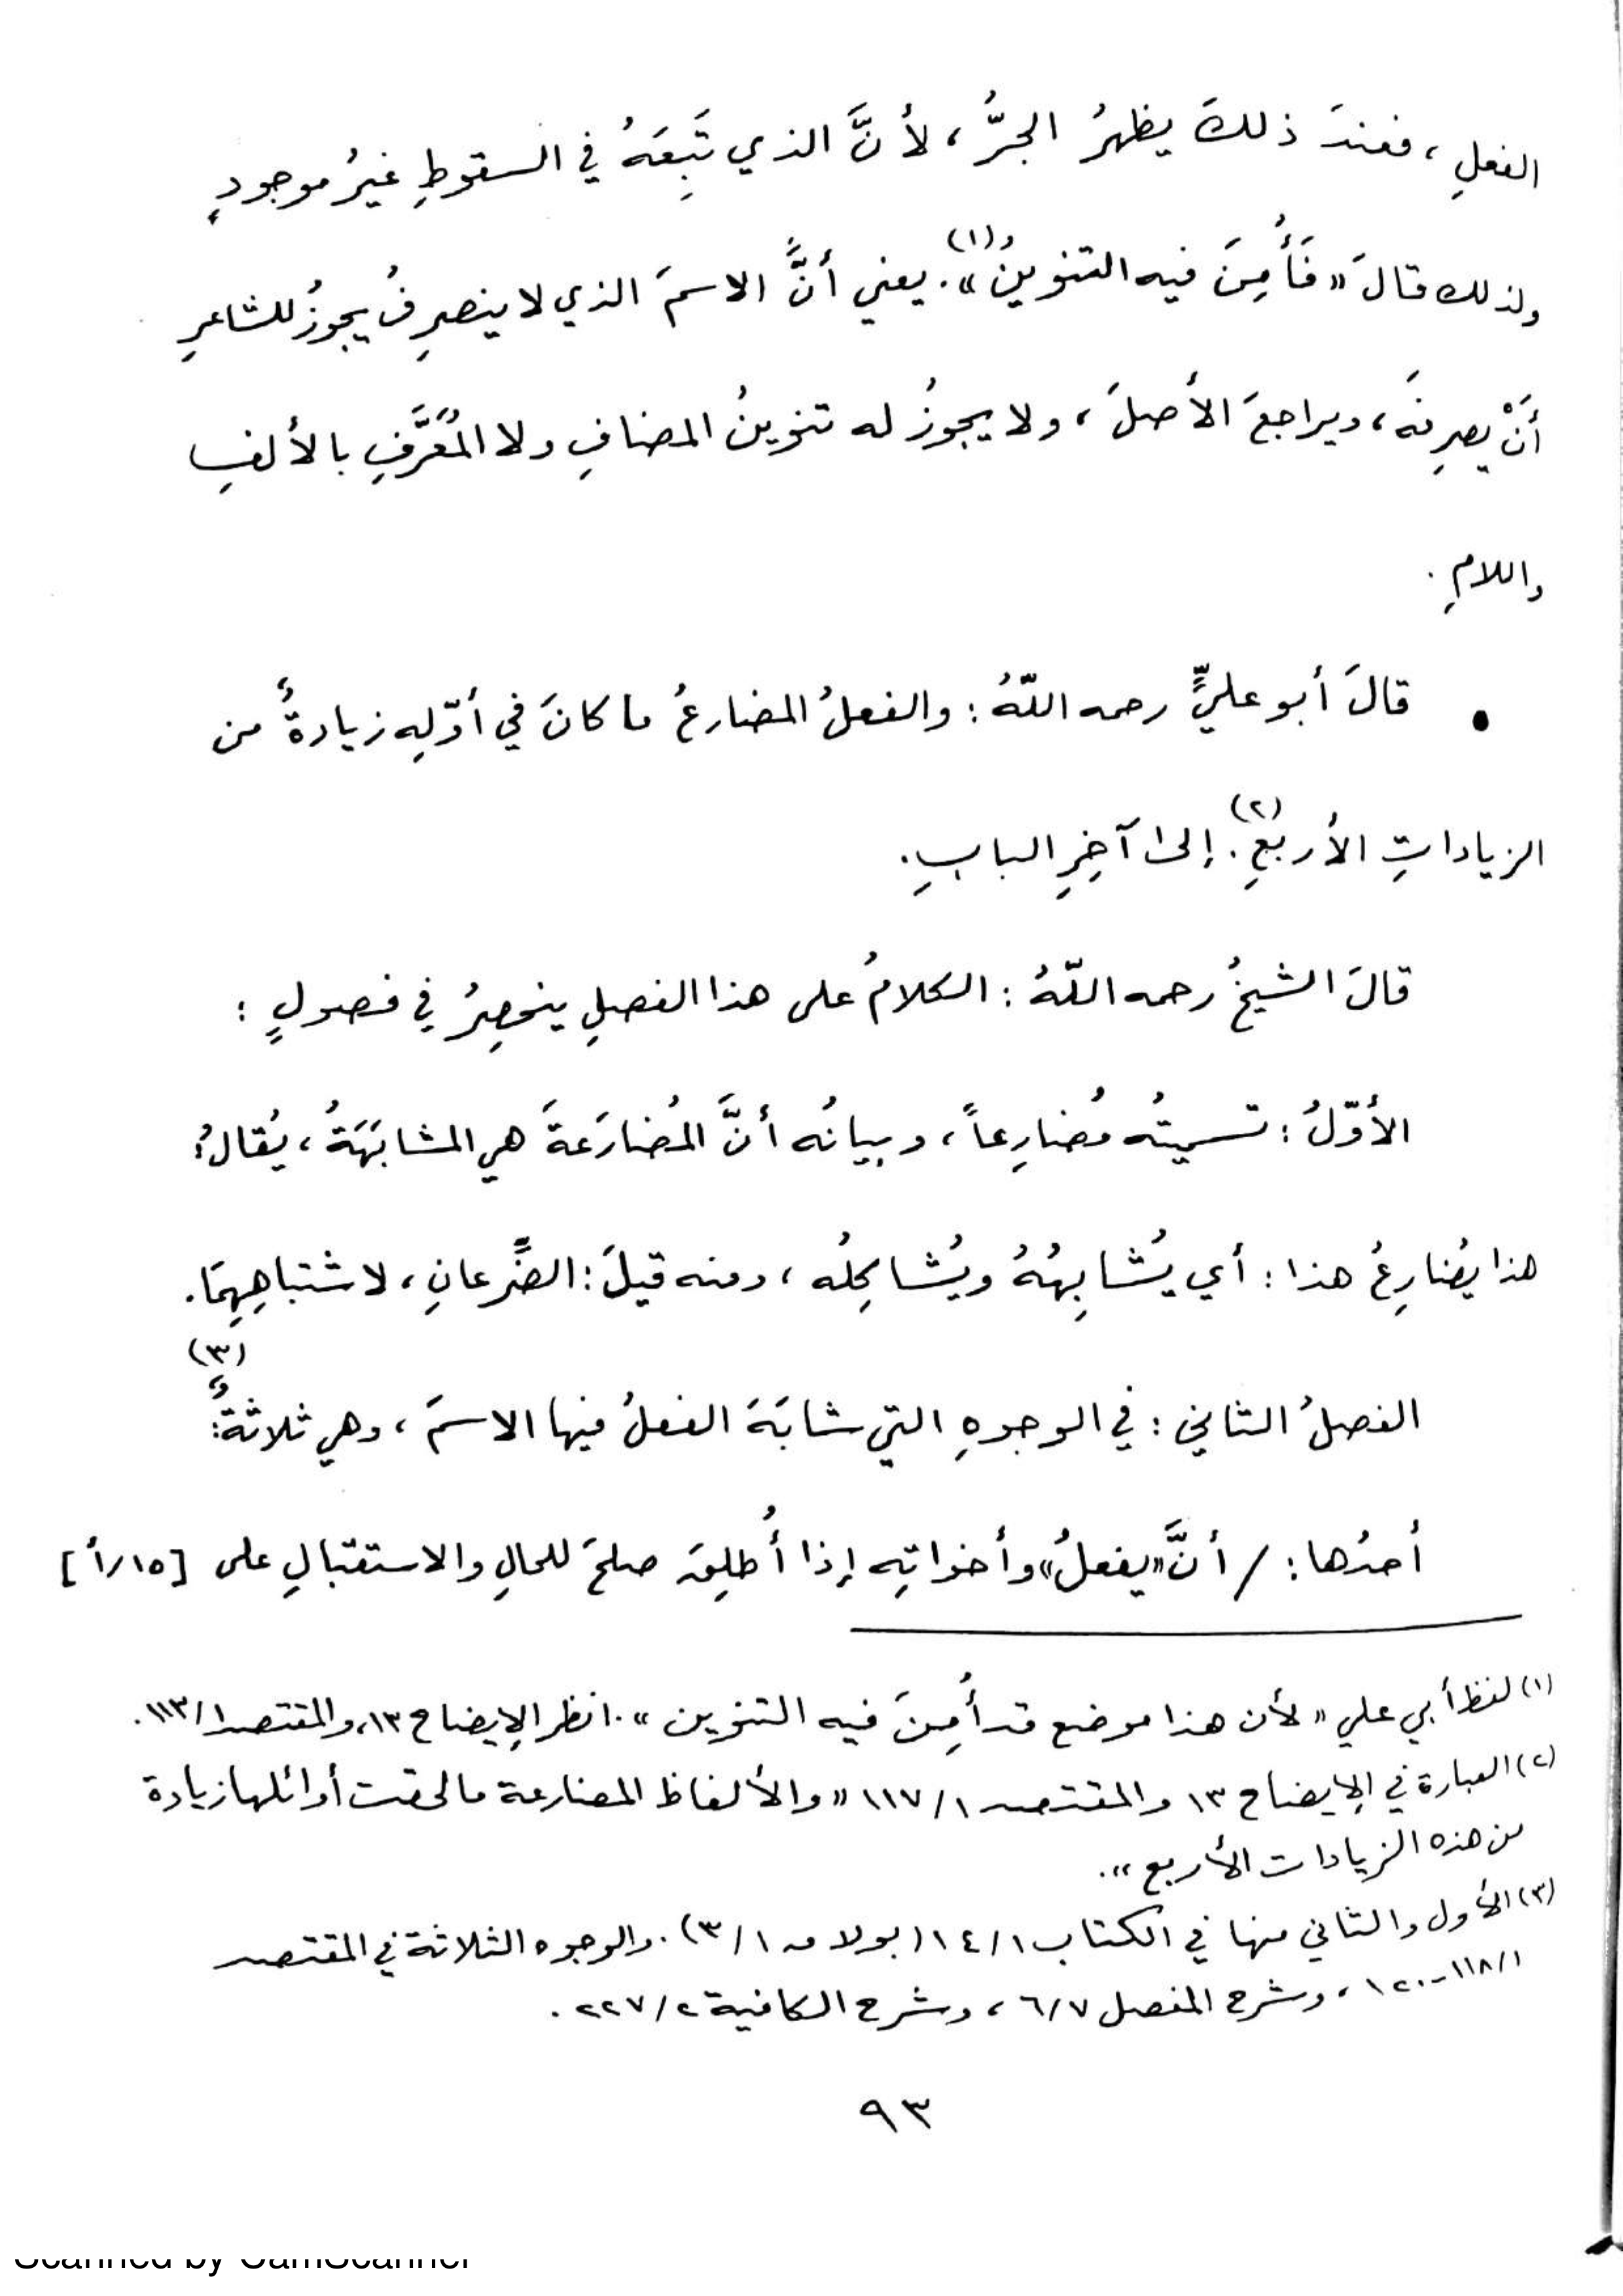 الفعلِ، فعندَ ذلكَ يظهرُ الجرُّ، لأنَّ الذي تَبِعَهُ في السقوطِ غيرُ موجودٍ
ولذلك قالَ «فَأُمِنَ فيه التنوينُ»(١). يعني أنَّ الاسمَ الذي لا ينصرِفُ يجوزُ للشاعرِ
أنْ يصرِفَه، ويراجعَ الأصلَ، ولا يجوزُ له تنوينُ المضافِ ولا المُعَرَّفِ بالألفِ
واللامِ.
• قالَ أبو عليٍّ رحمه اللّهُ: والفعلُ المضارعُ ما كانَ في أوّلِه زيادةٌ من
الزياداتِ الأربعِ(٢). إلىٰ آخِرِ البابِ.
قالَ الشيخُ رحمه اللّهُ: الكلامُ على هذا الفصلِ ينحصِرُ في فصولٍ:
الأوّلُ: تسميتُه مُضارِعاً، وبيانُه أنَّ المُضارَعةَ هي المشابَهَةُ، يُقالُ:
هذا يُضارِعُ هذا: أي يُشابِهُهُ ويُشاكِلُه، ومنه قيلَ: الضَّرعانِ، لاشتباهِهِمَا.
الفصلُ الثاني: في الوجوهِ التي شابَهَ الفعلُ فيها الاسمَ، وهي ثلاثةٌ(٣):
أحدُها: / أنَّ «يفعلُ» وأخواتِه إذا أُطلِقَ صلحَ للحالِ والاستقبالِ على [١٥/أ]
(١) لفظ أبي علي «لأن هذا موضع قد أُمِنَ فيه التنوين». انظر الإيضاح ١٣، والمقتصد ١/١١٣.
(٢) العبارة في الإيضاح ١٣ والمقتصد ١/١١٧ «والألفاظ المضارعة ما لحقت أوائلها زيادة
من هذه الزيادات الأربع».
(٣) الأول والثاني منها في الكتاب ١/١٤ (بولاق ١/٣). والوجوه الثلاثة في المقتصد
١/١١٨-١٢٠، وشرح المفصل ٧/٦، وشرح الكافية ٢/٢٢٧.
٩٣
Scanned by CamScanner